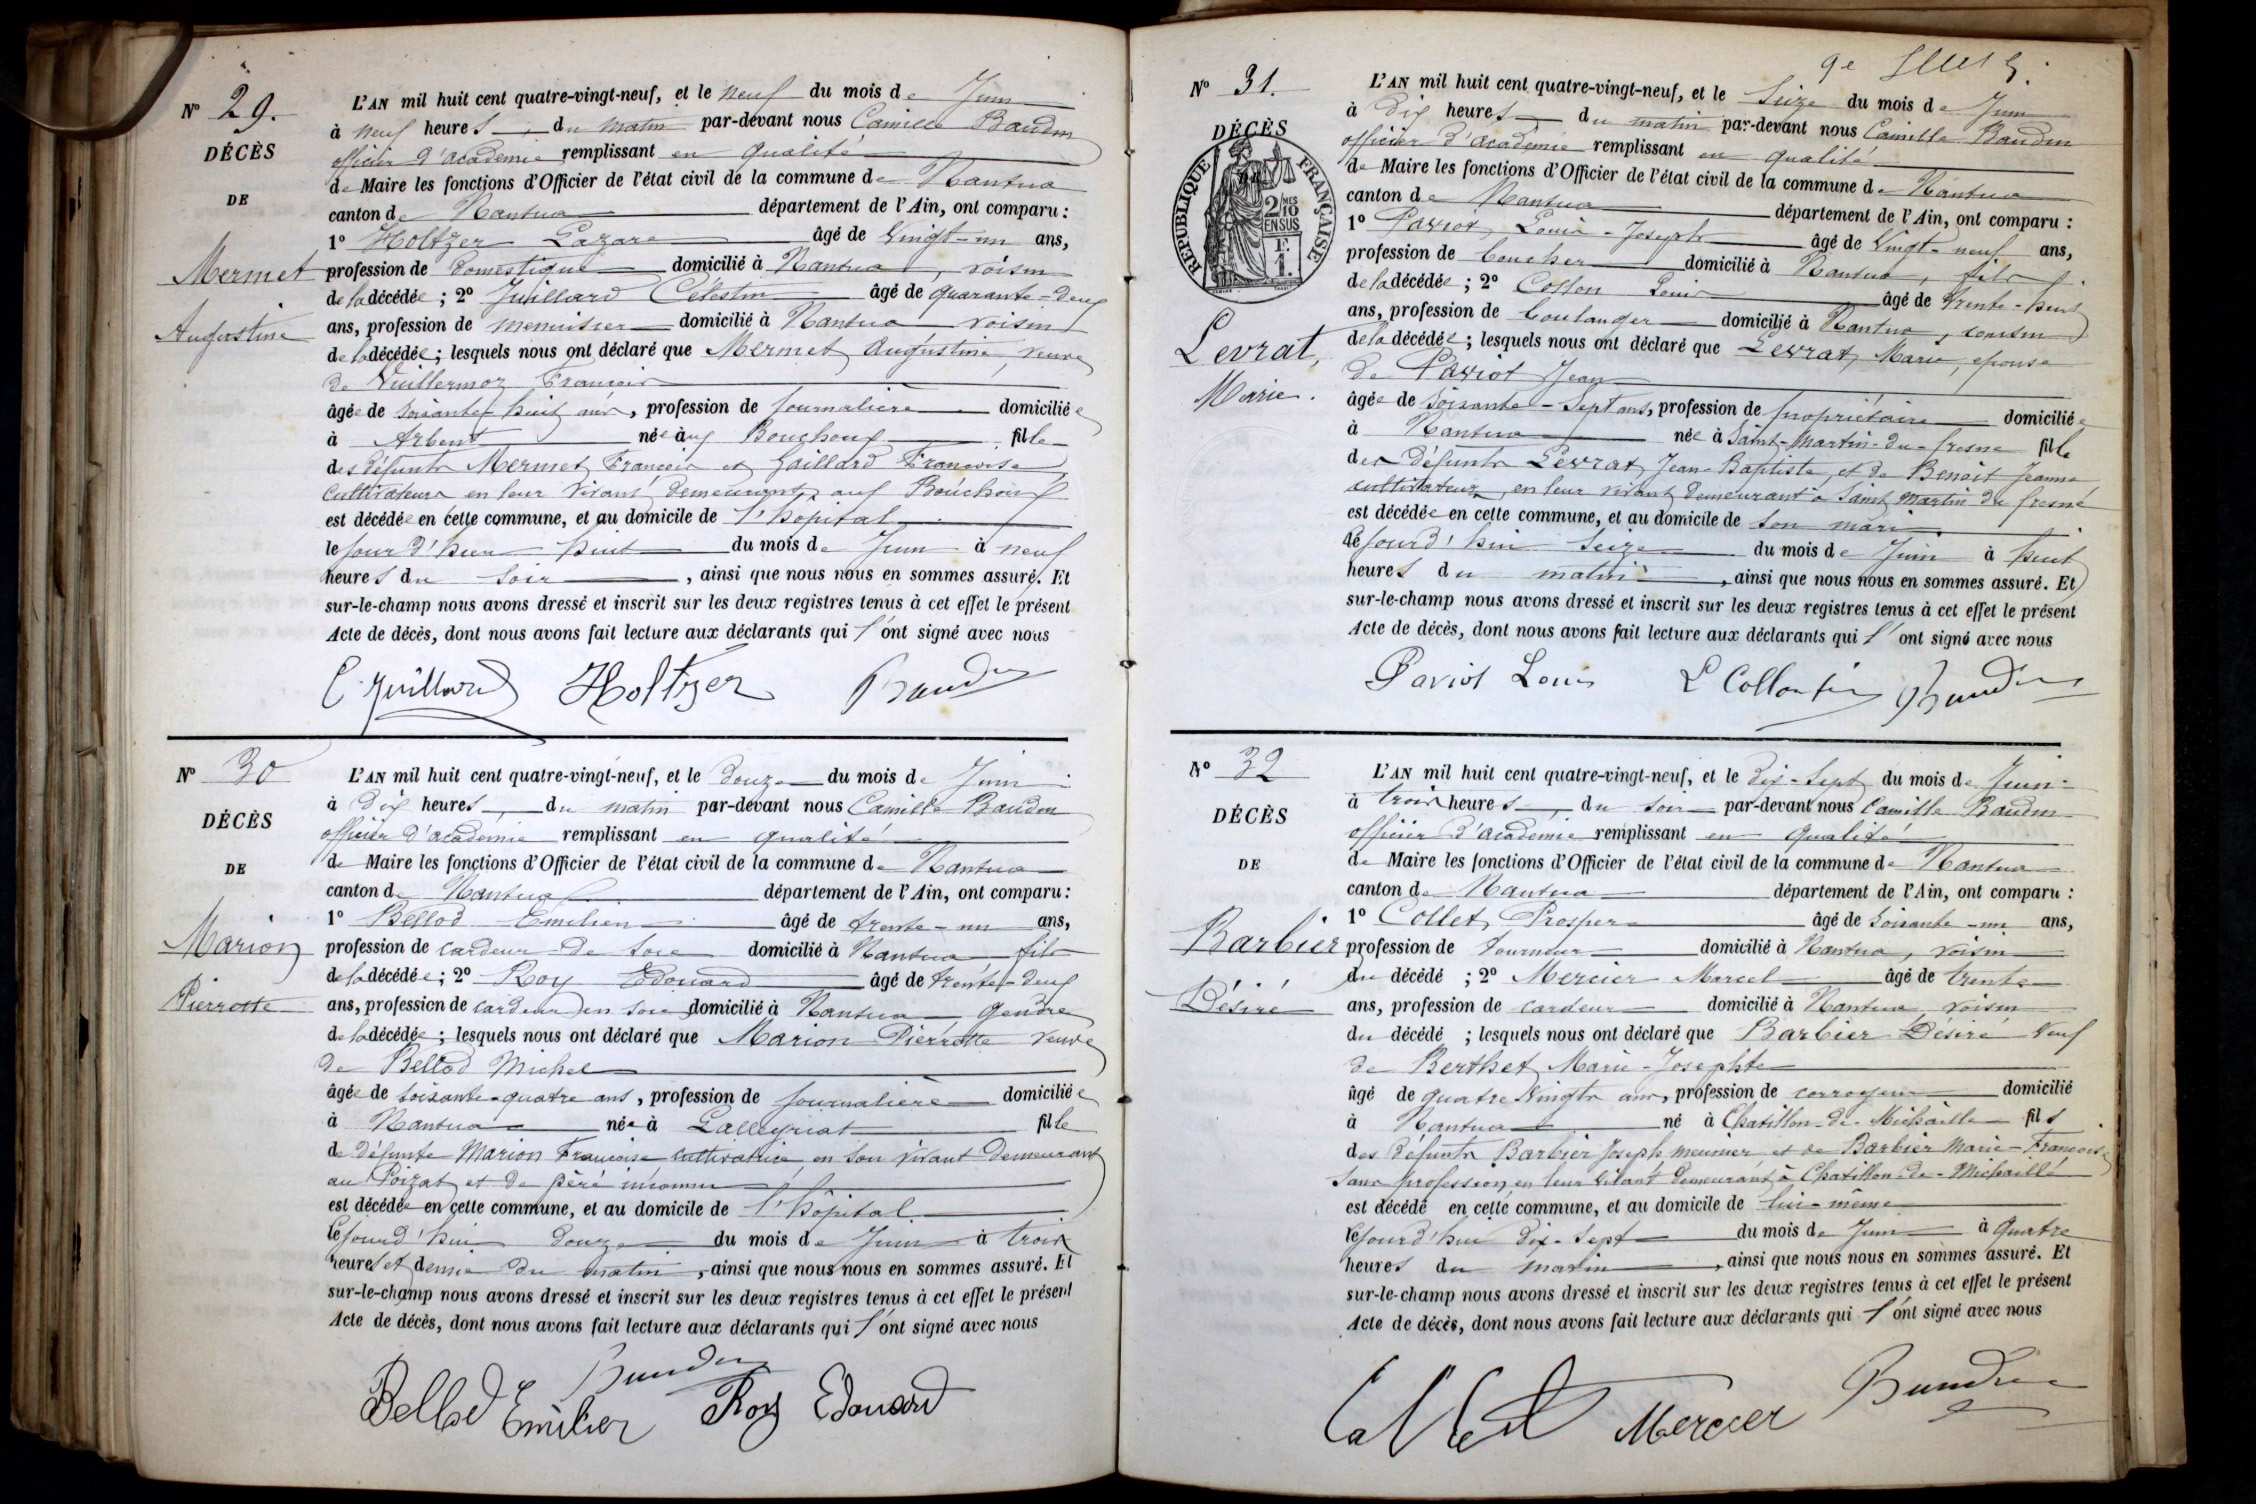 N° 29.
DÉCÈS
DE
Mermet
Augustine
L'AN mil huit cent quatre-vingt-neuf, et le neuf du mois de Juin
à neuf heures du matin par-devant nous Camille Baudin
officier d'académie remplissant en qualité
de Maire les fonctions d'Officier de l'état civil de la commune de Nantua
canton de Nantua département de l'Ain, ont comparu :
1° Holtzer Lazare âgé de vingt-un ans,
profession de domestique domicilié à Nantua, voisin
de la décédée ; 2° Juillard Célestin âgé de quarante-deux
ans, profession de menuisier domicilié à Nantua voisin
de la décédée ; lesquels nous ont déclaré que Mermet Augustine, veuve
de Vuillermoz François
âgée de soixante-huit ans, profession de journalière domiciliée
à Arbent née aux Bouchoux fille
des défunts Mermet François et Gaillard Françoise
cultivateurs en leur vivant demeurant aux Bouchoux
est décédée en cette commune, et au domicile de l'hôpital
le jour d'hier huit du mois de Juin à neuf
heures du soir, ainsi que nous nous en sommes assuré. Et
sur-le-champ nous avons dressé et inscrit sur les deux registres tenus à cet effet le présent
Acte de décès, dont nous avons fait lecture aux déclarants qui l'ont signé avec nous
C. Juillard Holtzer Baudin
N° 30
DÉCÈS
DE
Marion
Pierrotte
L'AN mil huit cent quatre-vingt-neuf, et le douze du mois de Juin
à dix heures du matin par-devant nous Camille Baudin
officier d'académie remplissant en qualité
de Maire les fonctions d'Officier de l'état civil de la commune de Nantua
canton de Nantua département de l'Ain, ont comparu :
1° Bellod Emilien âgé de trente-un ans,
profession de cardeur de soie domicilié à Nantua fils
de la décédée ; 2° Roy Edouard âgé de trente-deux
ans, profession de cardeur en soie domicilié à Nantua gendre
de la décédée ; lesquels nous ont déclaré que Marion Pierrotte veuve
de Bellod Michel
âgée de soixante-quatre ans, profession de journalière domiciliée
à Nantua née à Lalleyriat fille
de défunte Marion Françoise cultivatrice en son vivant demeurant
au Poizat et de père inconnu
est décédée en cette commune, et au domicile de l'hôpital
cejourd'hui douze du mois de Juin à trois
heures et demie du matin, ainsi que nous nous en sommes assuré. Et
sur-le-champ nous avons dressé et inscrit sur les deux registres tenus à cet effet le présent
Acte de décès, dont nous avons fait lecture aux déclarants qui l'ont signé avec nous
Baudin
Bellod Emilien Roy Edouard
N° 31.
DÉCÈS
RÉPUBLIQUE FRANÇAISE
2 MES 10 EN SUS
F. 1.
Levrat,
Marie.
L'AN mil huit cent quatre-vingt-neuf, et le Seize du mois de Juin
à dix heures du matin par-devant nous Camille Baudin
officier d'académie remplissant en qualité
de Maire les fonctions d'Officier de l'état civil de la commune de Nantua
canton de Nantua département de l'Ain, ont comparu :
1° Paviot, Louis-Joseph âgé de vingt-neuf ans,
profession de boucher domicilié à Nantua, fils
de la décédée ; 2° Collon Louis âgé de trente-huit
ans, profession de boulanger domicilié à Nantua, cousin
de la décédée ; lesquels nous ont déclaré que Levrat, Marie, épouse
de Paviot Jean
âgée de soixante-sept ans, profession de propriétaire domiciliée
à Nantua née à Saint-Martin-du-fresne fille
des défunts Levrat, Jean-Baptiste, et de Benoit Jeanne
cultivateurs, en leur vivant demeurant à Saint Martin du fresne
est décédée en cette commune, et au domicile de son mari
cejourd'hui seize du mois de Juin à huit
heures du matin, ainsi que nous nous en sommes assuré. Et
sur-le-champ nous avons dressé et inscrit sur les deux registres tenus à cet effet le présent
Acte de décès, dont nous avons fait lecture aux déclarants qui l'ont signé avec nous
Paviot Louis Baudin
N° 32
DÉCÈS
DE
Barbier
Désiré
L'AN mil huit cent quatre-vingt-neuf, et le dix-sept du mois de Juin
à trois heures du soir par-devant nous Camille Baudin
officier d'académie remplissant en qualité
de Maire les fonctions d'Officier de l'état civil de la commune de Nantua
canton de Nantua département de l'Ain, ont comparu :
1° Collet, Prosper âgé de soixante-un ans,
profession de tourneur domicilié à Nantua, voisin
du décédé ; 2° Mercier Marcel âgé de trente
ans, profession de cardeur domicilié à Nantua, voisin
du décédé ; lesquels nous ont déclaré que Barbier Désiré veuf
de Berthet, Marie-Josephte
âgé de quatre vingts ans, profession de corroyeur domicilié
à Nantua né à Chatillon-de-Michaille fils
des défunts Barbier Joseph, meunier et de Barbier Marie-Françoise
sans profession, en leur vivant demeurant à Chatillon-de-Michaille
est décédé en cette commune, et au domicile de lui-même
cejourd'hui dix-sept du mois de Juin à quatre
heures du matin, ainsi que nous nous en sommes assuré. Et
sur-le-champ nous avons dressé et inscrit sur les deux registres tenus à cet effet le présent
Acte de décès, dont nous avons fait lecture aux déclarants qui l'ont signé avec nous
Collet Mercier Baudin